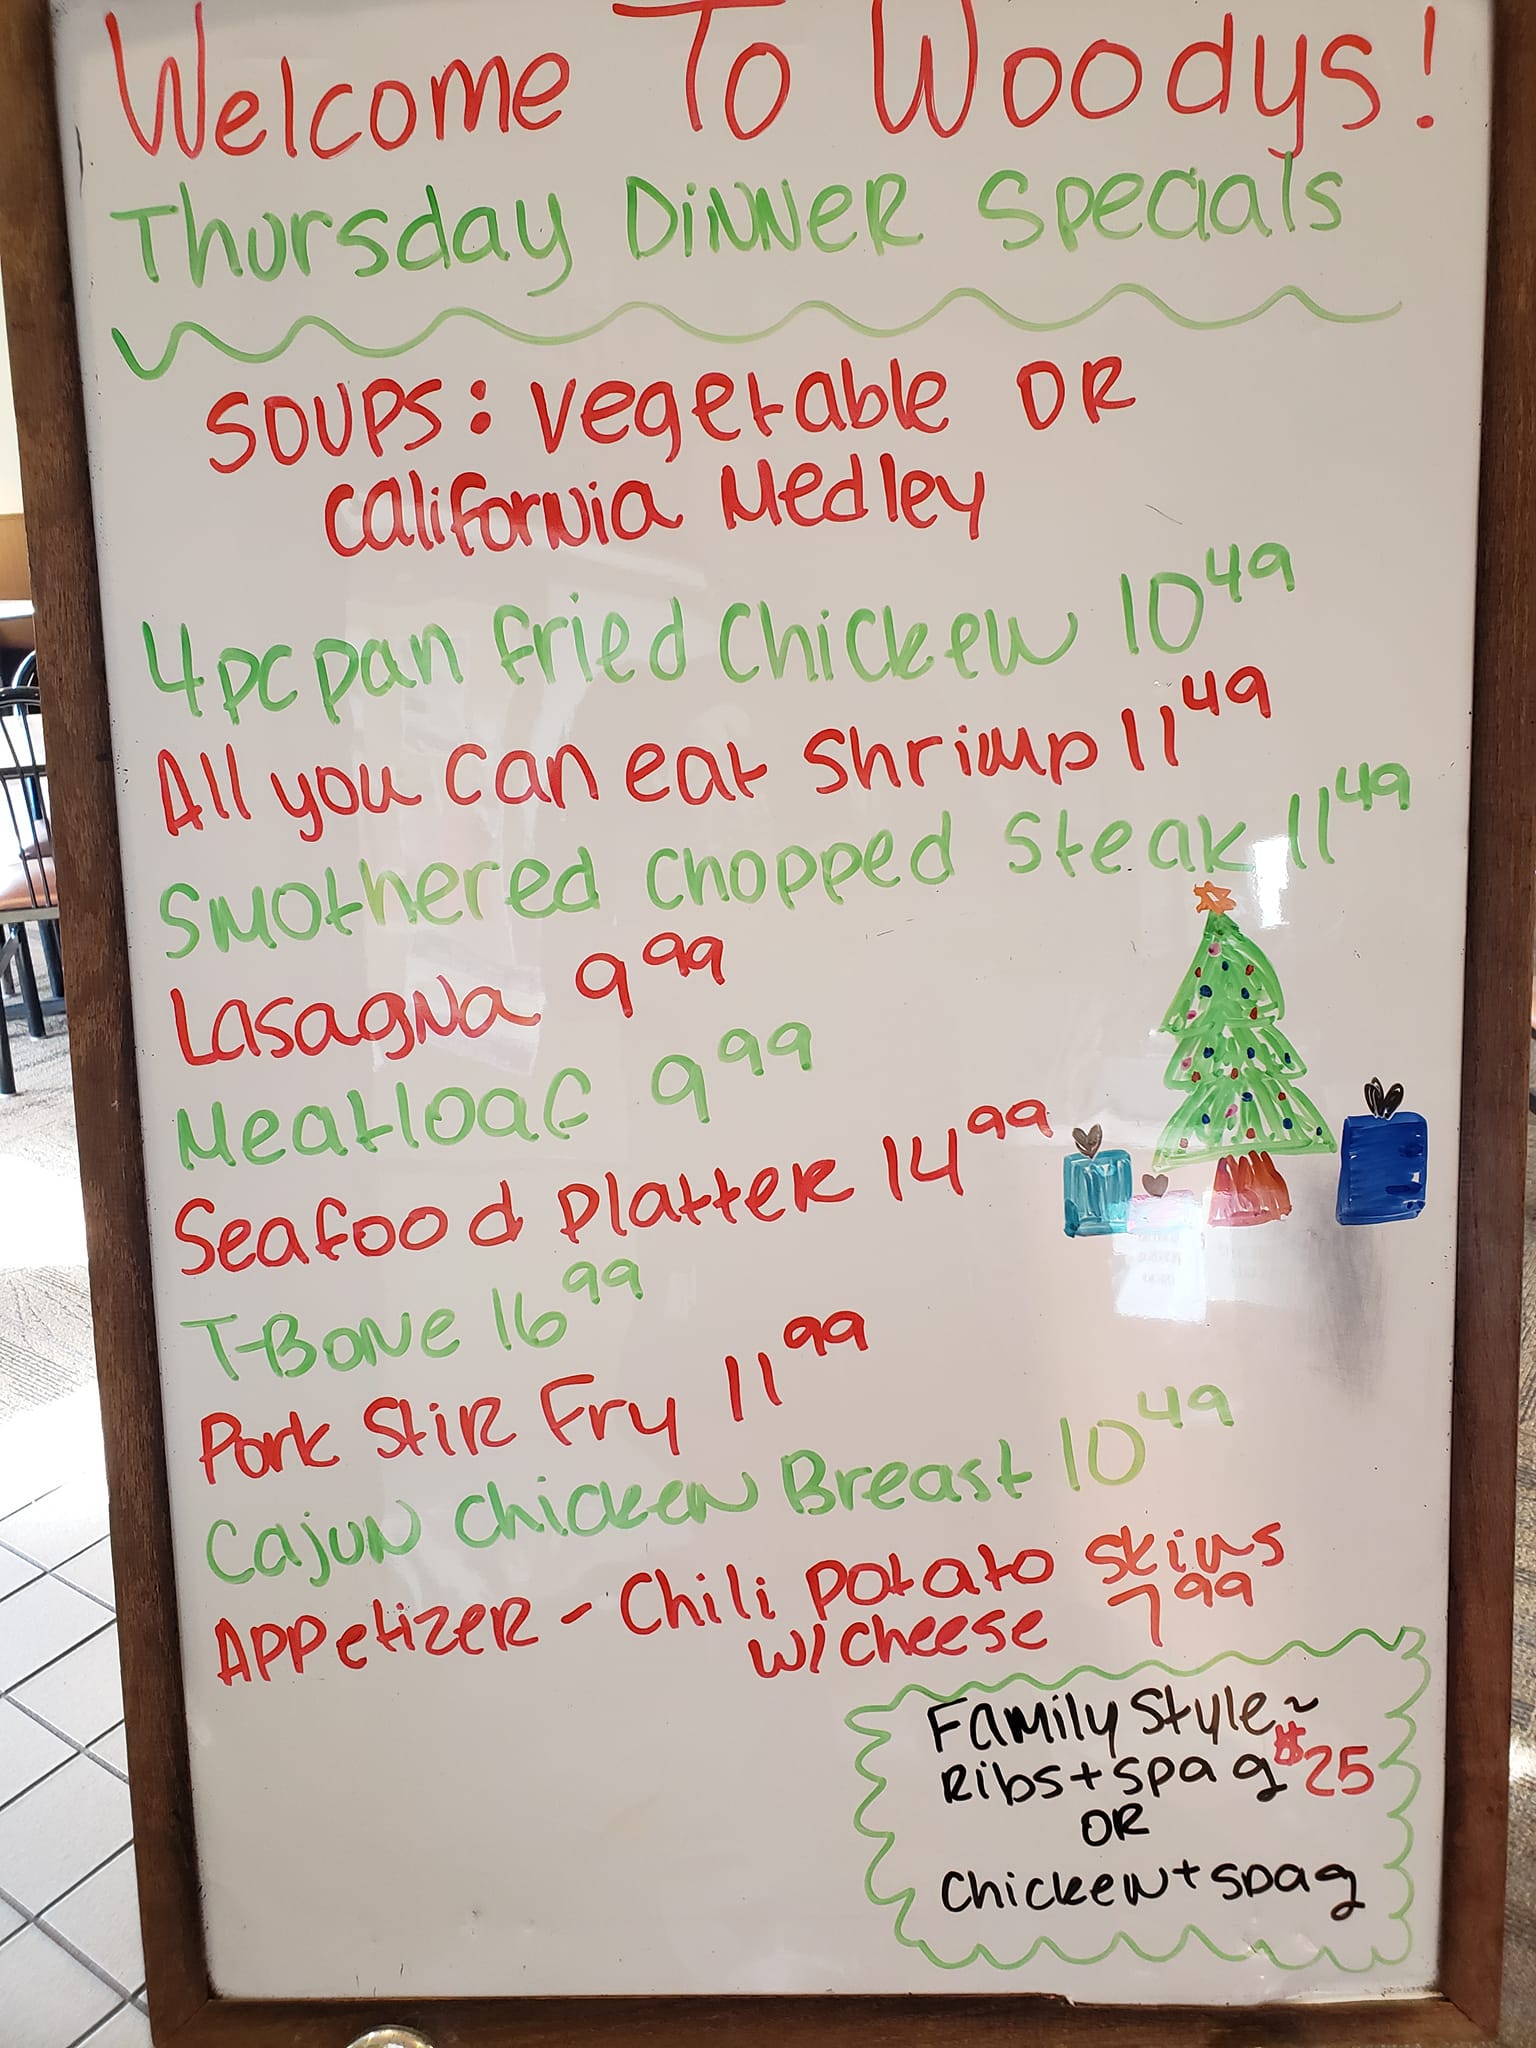 Welcome To Woodys!
Thursday DiNNeR Specials
SOUPS: vegetable OR
California Medley
4pc pan fried Chicken 10 49
All you can eat Shrimp 11 49
Smothered Chopped Steak 11 49
Lasagna 9 99
Meatloaf 9 99
Seafood platteR 14 99
T-Bone 16 99
Pork StiR Fry 11 99
Cajun Chicken Breast 10 49
AppetizeR - Chili potato skins
w/cheese 7 99
Family Style~
Ribs + spag $25
OR
Chicken + spag